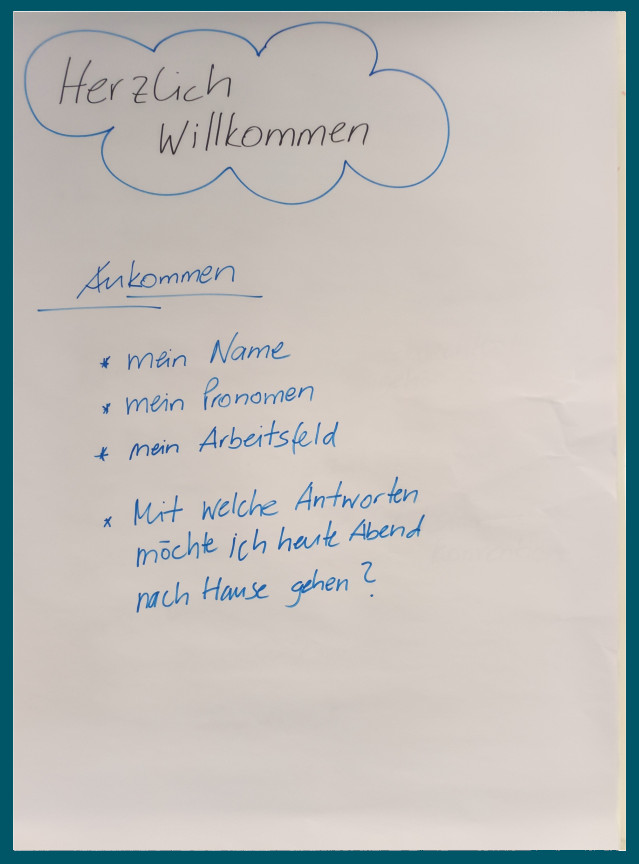 Herzlich
Willkommen
Ankommen
* mein Name
* mein Pronomen
* mein Arbeitsfeld
* Mit welche Antworten
möchte ich heute Abend
nach Hause gehen?